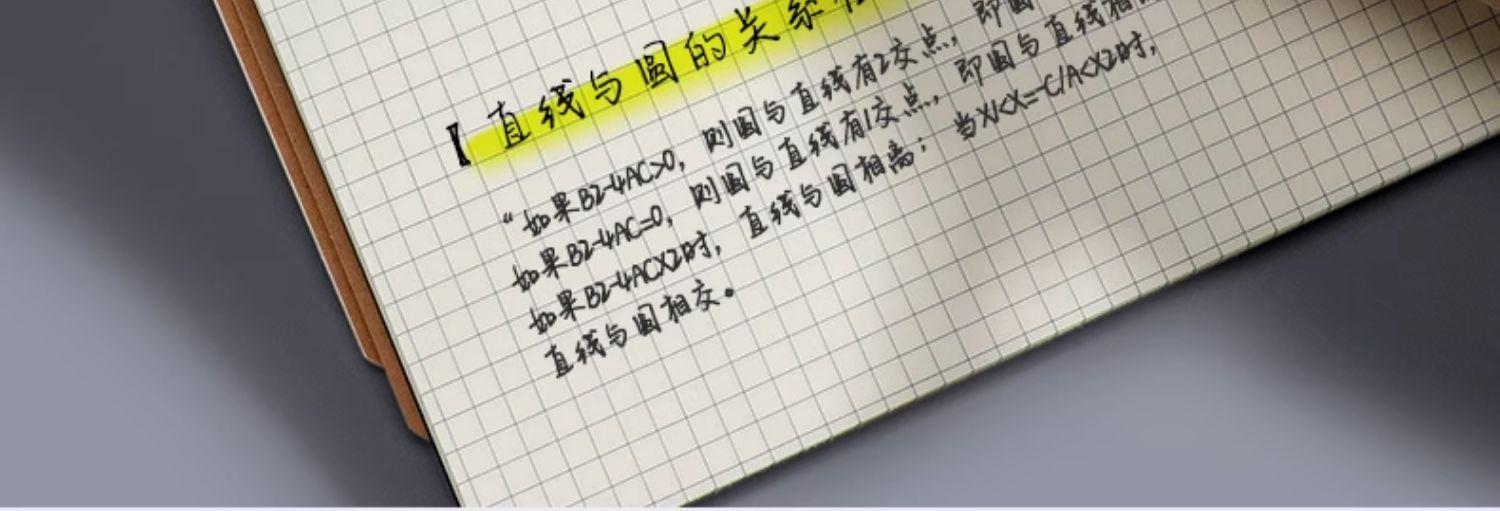 【直线与圆的关系
“如果B2-4AC>0，则圆与直线有2交点，即圆
如果B2-4AC=0，则圆与直线有1交点，即圆与直线相
如果B2-4ACX2时，直线与圆相离；当X1<X=-C/A<X2时，
直线与圆相交。